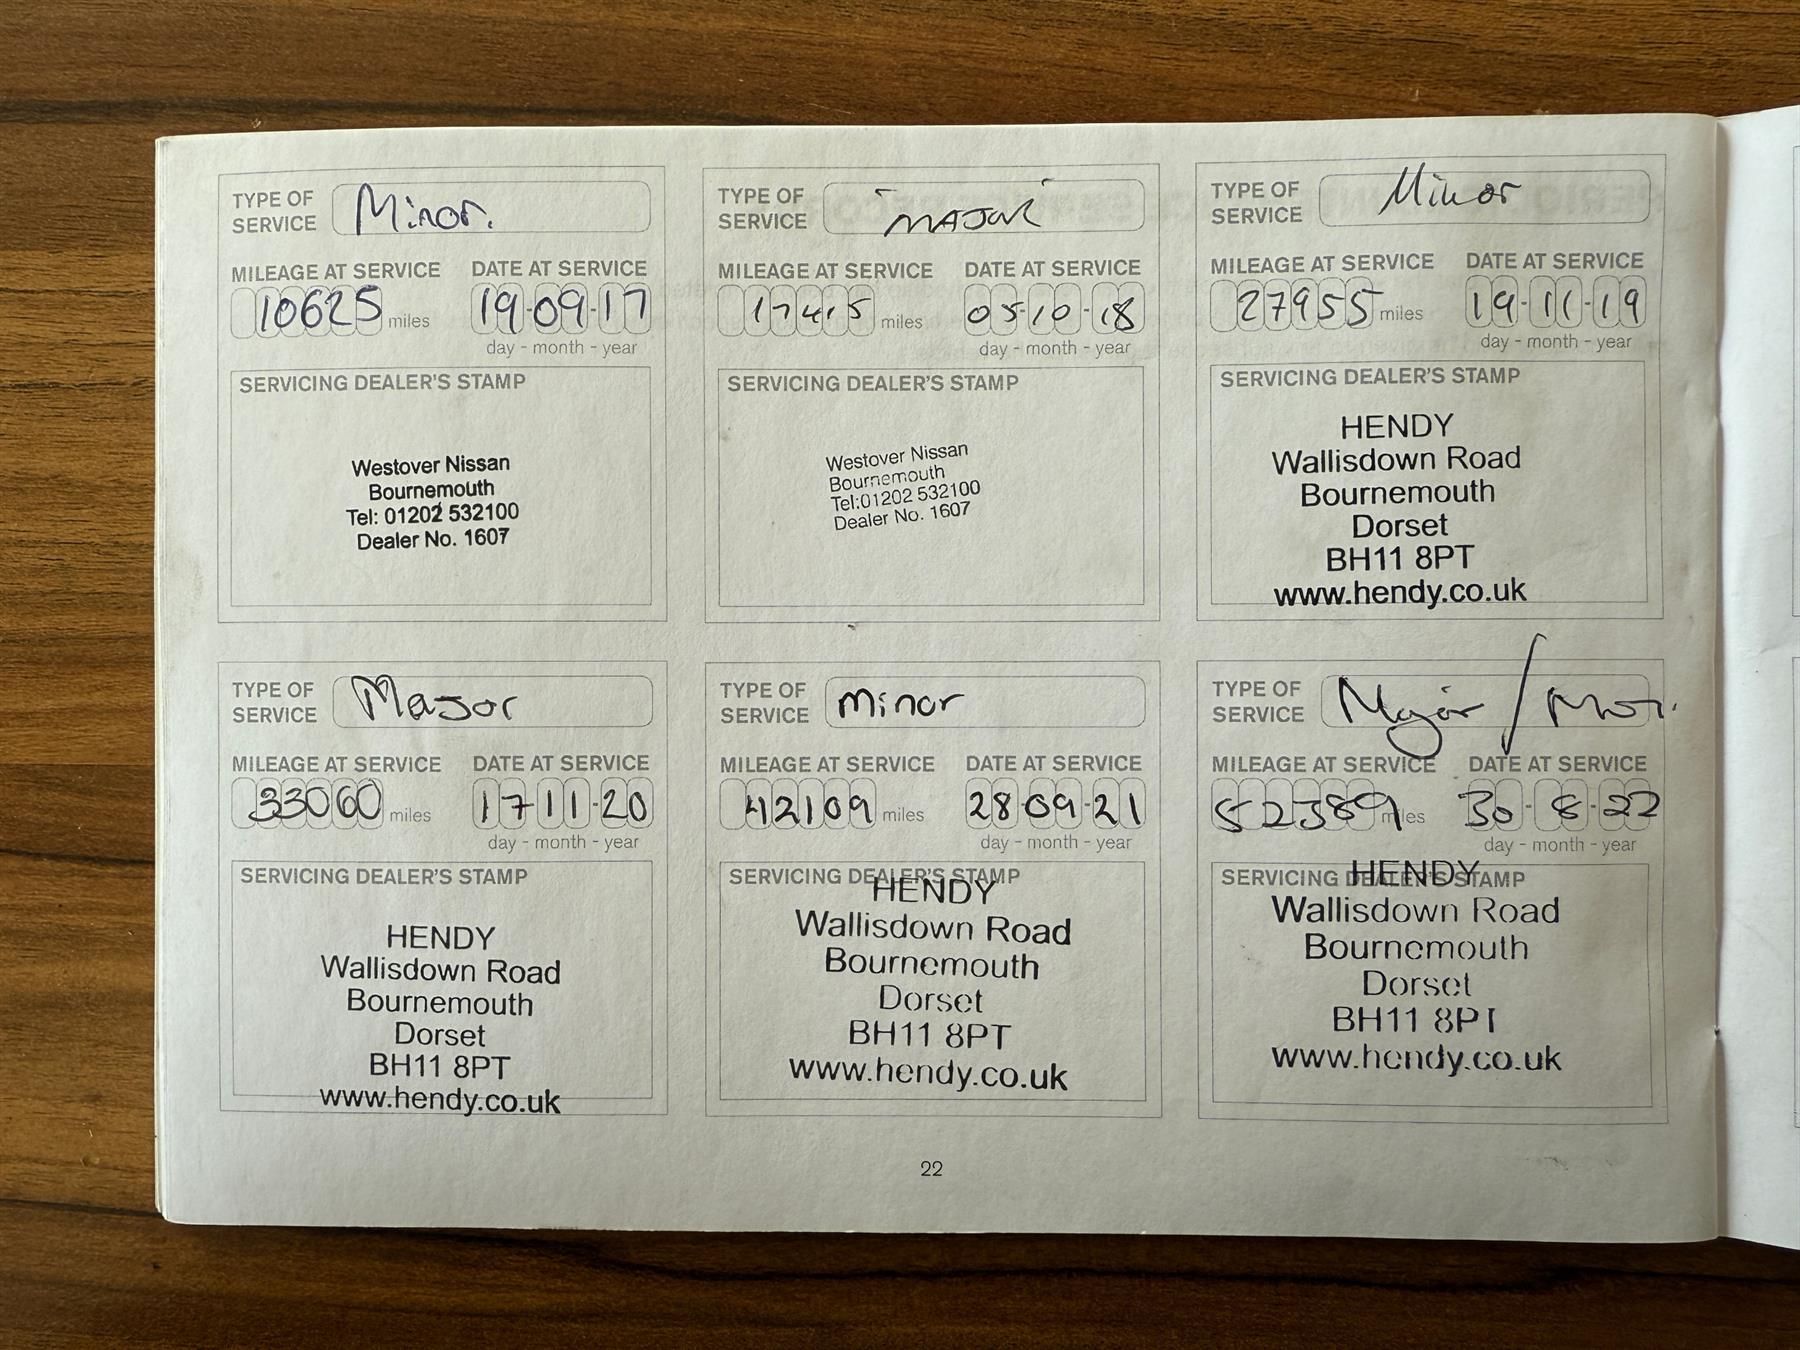 TYPE OF SERVICE Minor.
MILEAGE AT SERVICE DATE AT SERVICE
10625 miles 19-09-17
day - month - year
SERVICING DEALER'S STAMP
Westover Nissan
Bournemouth
Tel: 01202 532100
Dealer No. 1607
TYPE OF SERVICE MAJOR
MILEAGE AT SERVICE DATE AT SERVICE
17415 miles 05-10-18
day - month - year
SERVICING DEALER'S STAMP
Westover Nissan
Bournemouth
Tel:01202 532100
Dealer No. 1607
TYPE OF SERVICE Minor
MILEAGE AT SERVICE DATE AT SERVICE
27955 miles 19-11-19
day - month - year
SERVICING DEALER'S STAMP
HENDY
Wallisdown Road
Bournemouth
Dorset
BH11 8PT
www.hendy.co.uk
TYPE OF SERVICE Major
MILEAGE AT SERVICE DATE AT SERVICE
33060 miles 17-11-20
day - month - year
SERVICING DEALER'S STAMP
HENDY
Wallisdown Road
Bournemouth
Dorset
BH11 8PT
www.hendy.co.uk
TYPE OF SERVICE minor
MILEAGE AT SERVICE DATE AT SERVICE
42109 miles 28-09-21
day - month - year
SERVICING DEALER'S STAMP
HENDY
Wallisdown Road
Bournemouth
Dorset
BH11 8PT
www.hendy.co.uk
TYPE OF SERVICE Major / MOT.
MILEAGE AT SERVICE DATE AT SERVICE
52389 miles 30-8-22
day - month - year
SERVICING DEALER'S STAMP
HENDY
Wallisdown Road
Bournemouth
Dorset
BH11 8PT
www.hendy.co.uk
22